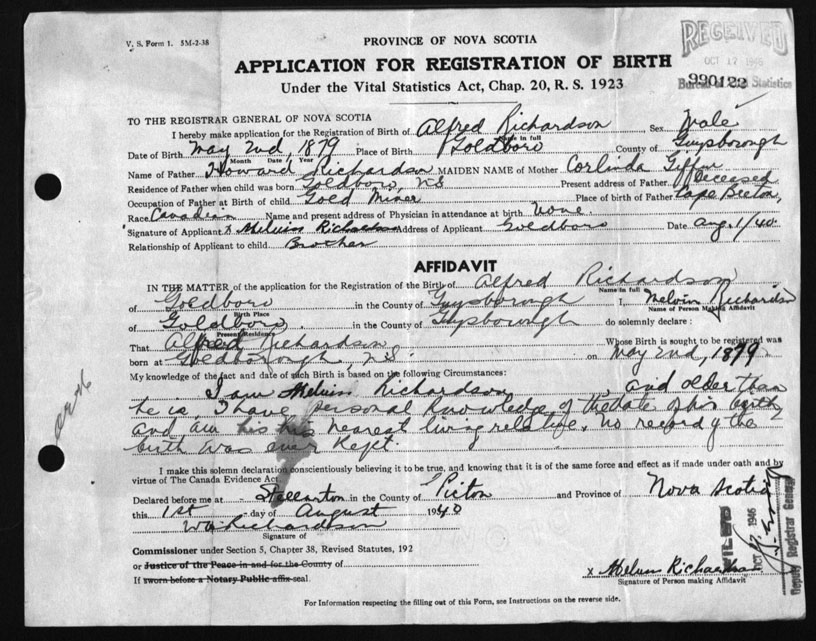 V. S. Form 1. 5M-2-38
PROVINCE OF NOVA SCOTIA
RECEIVED
APPLICATION FOR REGISTRATION OF BIRTH
OCT 17 1946
990122
Under the Vital Statistics Act, Chap. 20, R. S. 1923
Bureau of Vital Statistics
TO THE REGISTRAR GENERAL OF NOVA SCOTIA
I hereby make application for the Registration of Birth of Alfred Richardson Sex Male
Name in full
Date of Birth May 2nd, 1879 Place of Birth Goldboro County of Guysborough
Month Date Year
Name of Father Howard Richardson MAIDEN NAME of Mother Corlinda Giffin
Residence of Father when child was born Goldboro, NS Present address of Father Deceased
Occupation of Father at Birth of child Gold Miner Place of birth of Father Cape Breton,
Race Canadian Name and present address of Physician in attendance at birth None.
Signature of Applicant x Melvin Richardson Address of Applicant Goldboro Date Aug. 1/40
Relationship of Applicant to child Brother
AFFIDAVIT
IN THE MATTER of the application for the Registration of the Birth of Alfred Richardson
Name in full
of Goldboro in the County of Guysborough I, Melvin Richardson
Birth Place
Name of Person Making Affidavit
of Goldboro in the County of Guysborough do solemnly declare :
Present Residence
That Alfred Richardson Whose Birth is sought to be registered was
born at Goldborough, NS on May 2nd, 1879
My knowledge of the fact and date of such Birth is based on the following Circumstances:
I am Melvin Richardson, and older than
he is, I have personal knowledge of the date of his birth,
and am his nearest living relative, no record of the
birth was ever kept.
I make this solemn declaration conscientiously believing it to be true, and knowing that it is of the same force and effect as if made under oath and by
virtue of The Canada Evidence Act.
Declared before me at Stellarton in the County of Pictou and Province of Nova Scotia
this 1st day of August 1940
Wm Richardson
Signature of
Commissioner under Section 5, Chapter 38, Revised Statutes, 192
or Justice of the Peace in and for the County of
If sworn before a Notary Public affix seal.
x Melvin Richardson
Signature of Person making Affidavit
FILED
OCT 1946
Deputy Registrar General
For Information respecting the filling out of this Form, see Instructions on the reverse side.